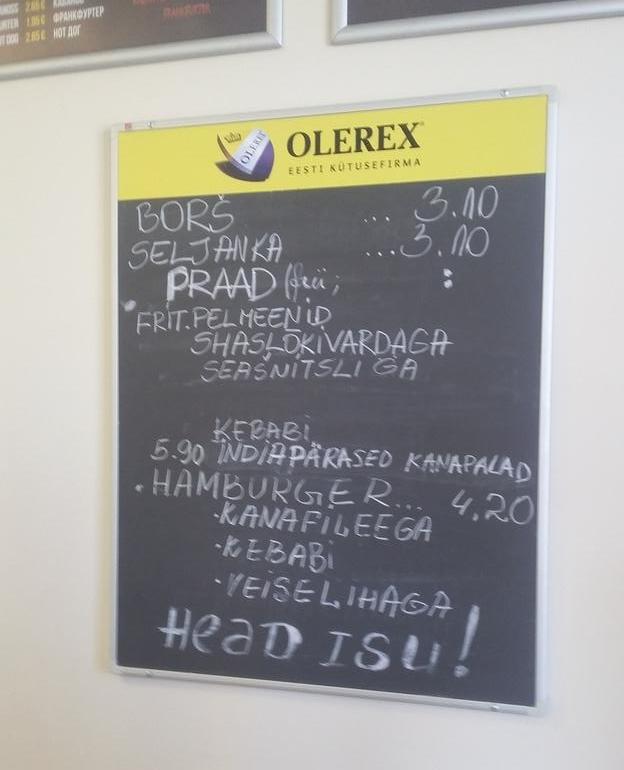 2.65 € КАБАНОС
1.95 € ФРАНКФУРТЕР
HOT DOG 2.65 € ХОТ ДОГ
OLEREX
OLEREX
EESTI KÜTUSEFIRMA
BORŠ ... 3.10
SELJANKA ...3.10
PRAAD :
FRIT.PELMEENID
SHASLÕKIVARDAGA
SEAŠNITSLIGA
KEBABI
5.90 INDIAPÄRASED KANAPALAD
HAMBURGER... 4.20
·KANAFILEEGA
·KEBABI
·VEISELIHAGA
HeaD ISU!